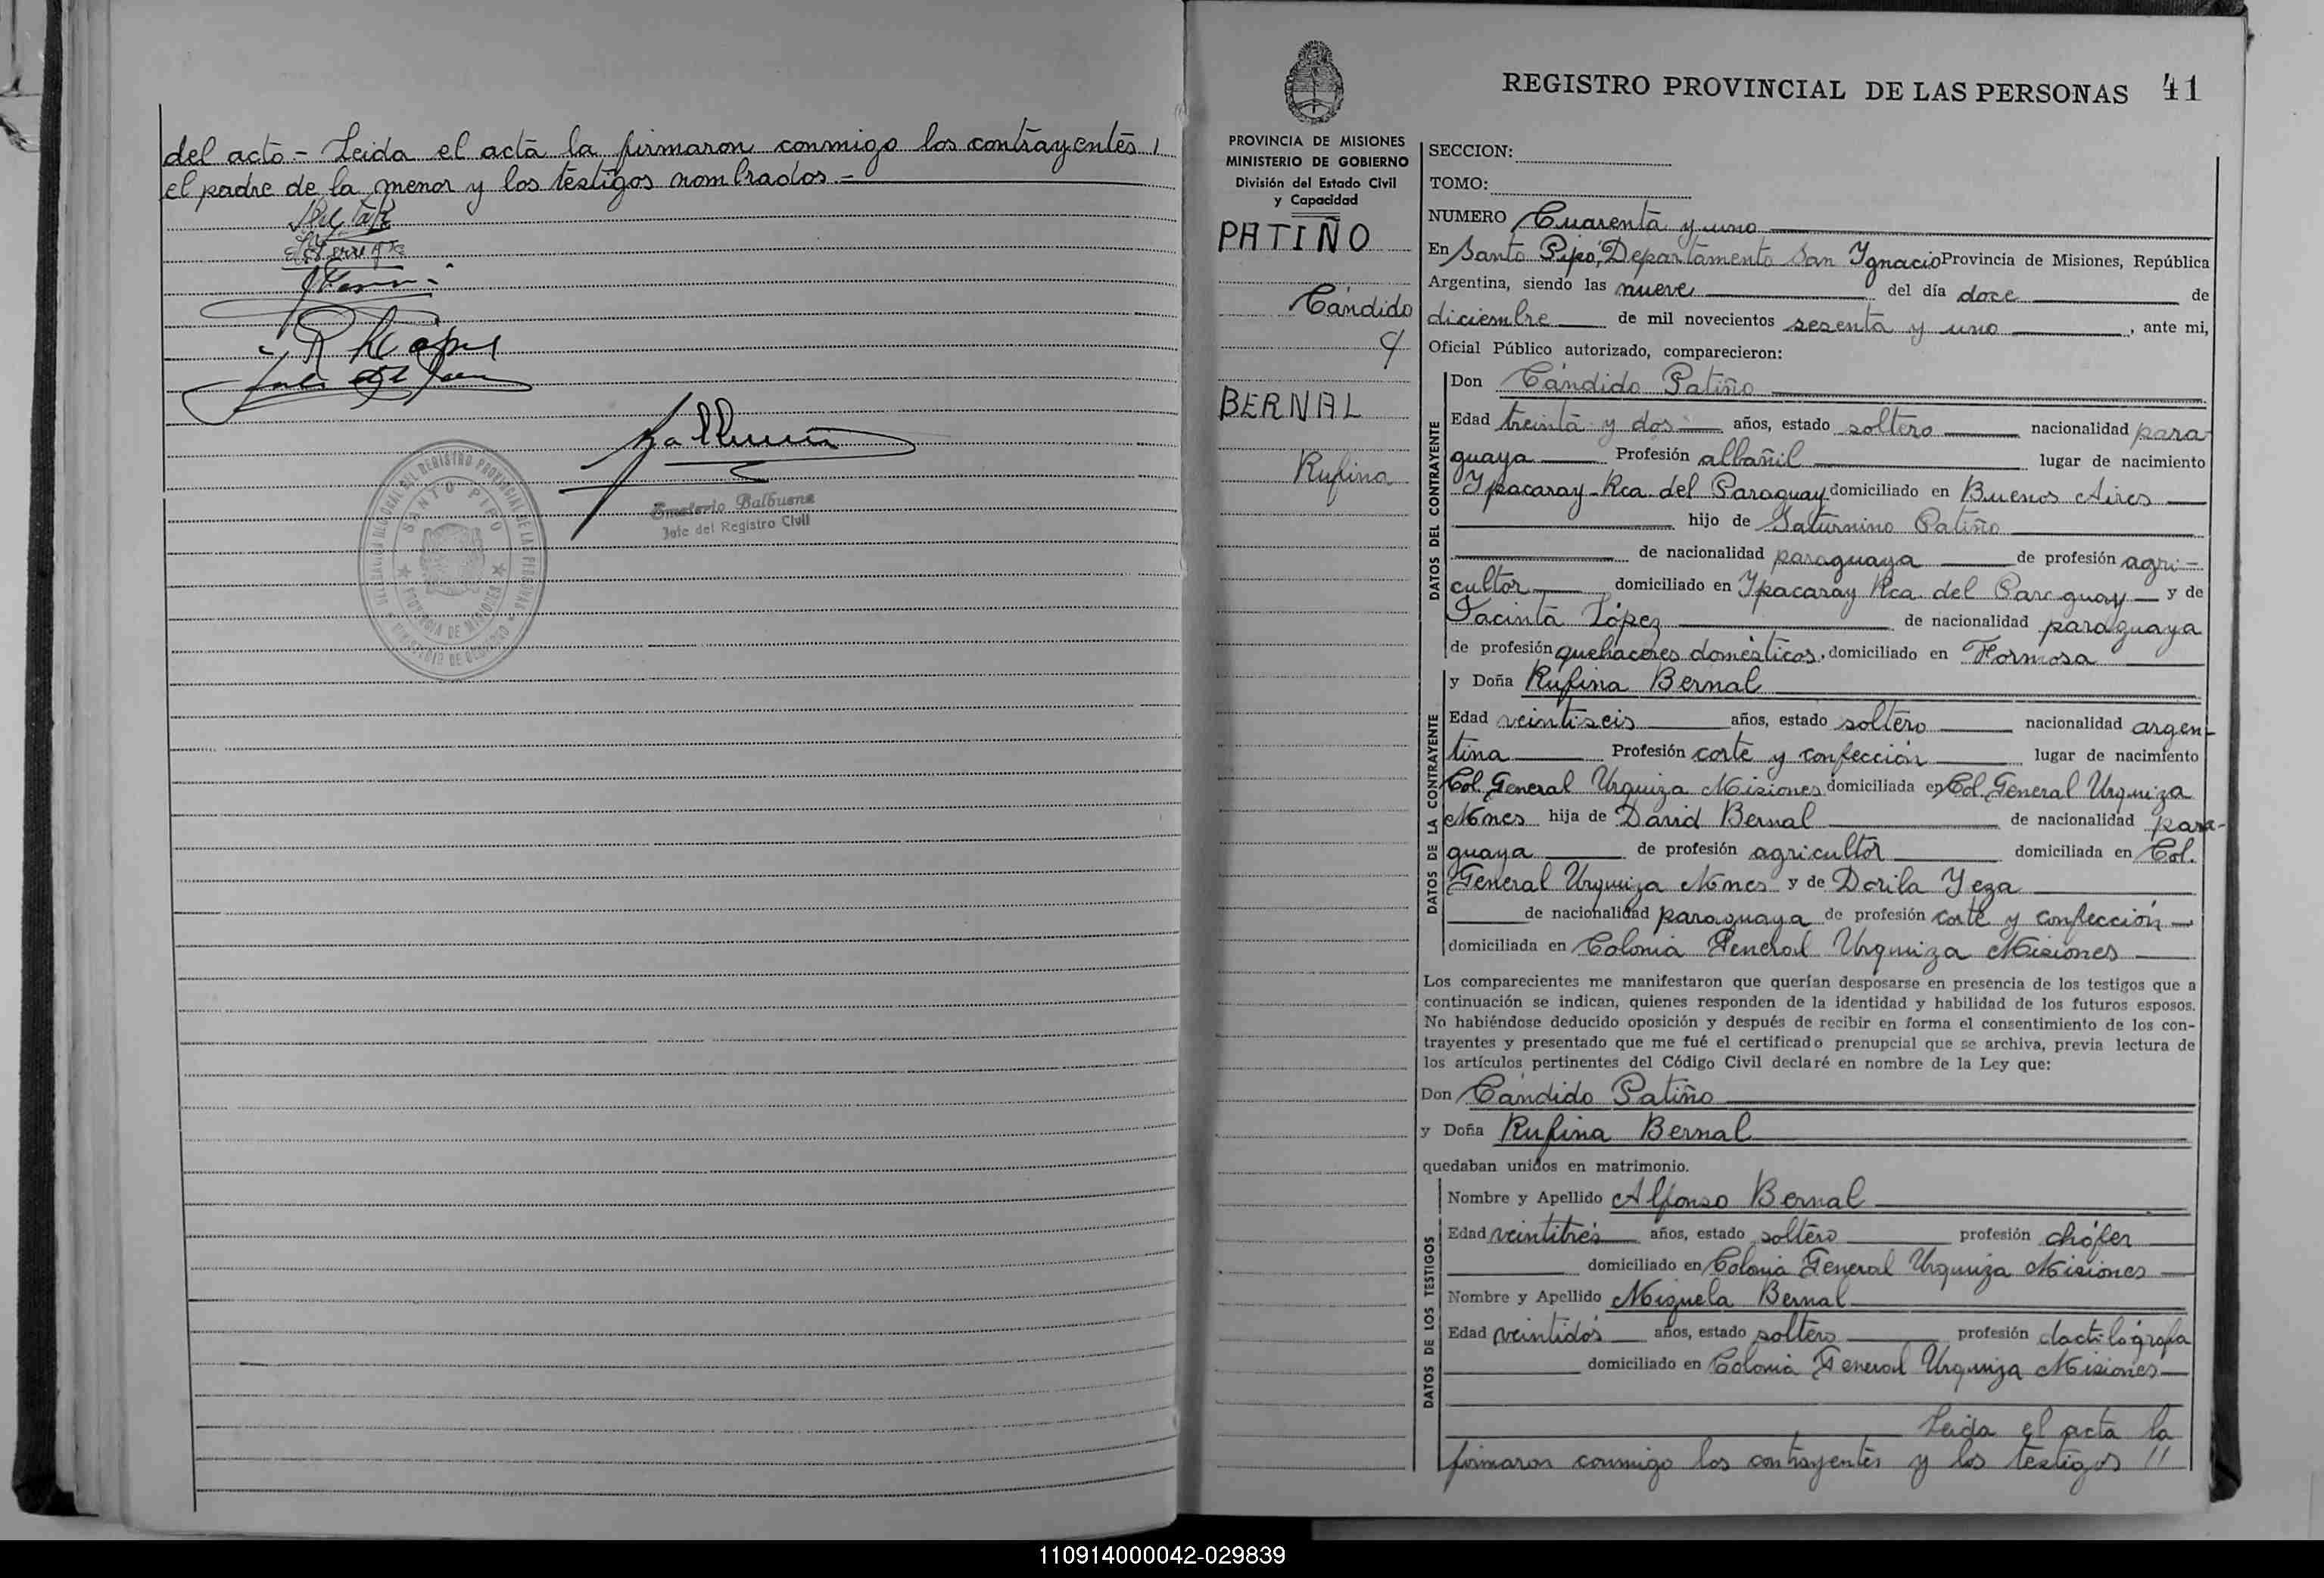 del acto - Leida el acta la firmaron conmigo los contrayentes,
el padre de la menor y los testigos nombrados.-
Emeterio Balbuena
Jefe del Registro Civil
SANTO PIPO
PROVINCIA DE MISIONES
REGISTRO PROVINCIAL DE LAS PERSONAS 41
PROVINCIA DE MISIONES
MINISTERIO DE GOBIERNO
División del Estado Civil
y Capacidad
PATIÑO
Cándido
y
BERNAL
Rufina
SECCION:
TOMO:
NUMERO Cuarenta y uno
En Santo Pipó, Departamento San Ignacio Provincia de Misiones, República
Argentina, siendo las nueve del día doce de
diciembre de mil novecientos sesenta y uno, ante mi,
Oficial Público autorizado, comparecieron:
DATOS DEL CONTRAYENTE
Don Cándido Patiño
Edad treinta y dos años, estado soltero nacionalidad para-
guaya Profesión albañil lugar de nacimiento
Ypacaray - Rca. del Paraguay domiciliado en Buenos Aires
hijo de Saturnino Patiño
de nacionalidad paraguaya de profesión agri-
cultor domiciliado en Ypacaray Rca. del Paraguay y de
Jacinta López de nacionalidad paraguaya
de profesión quehaceres domésticos, domiciliado en Formosa
DATOS DE LA CONTRAYENTE
y Doña Rufina Bernal
Edad veintiseis años, estado soltero nacionalidad argen-
tina Profesión corte y confección lugar de nacimiento
Col. General Urquiza Misiones domiciliada en Col. General Urquiza
Mnes hija de David Bernal de nacionalidad para-
guaya de profesión agricultor domiciliada en Col.
General Urquiza Mnes y de Dorila Yeza
de nacionalidad paraguaya de profesión corte y confección
domiciliada en Colonia General Urquiza Misiones
Los comparecientes me manifestaron que querían desposarse en presencia de los testigos que a
continuación se indican, quienes responden de la identidad y habilidad de los futuros esposos.
No habiéndose deducido oposición y después de recibir en forma el consentimiento de los con-
trayentes y presentado que me fué el certificado prenupcial que se archiva, previa lectura de
los artículos pertinentes del Código Civil declaré en nombre de la Ley que:
Don Cándido Patiño
y Doña Rufina Bernal
quedaban unidos en matrimonio.
DATOS DE LOS TESTIGOS
Nombre y Apellido Alfonso Bernal
Edad veintitrés años, estado soltero profesión chófer
domiciliado en Colonia General Urquiza Misiones
Nombre y Apellido Miguela Bernal
Edad veintidós años, estado soltero profesión dactilógrafa
domiciliado en Colonia General Urquiza Misiones
Leida el acta la
firmaron conmigo los contrayentes y los testigos //
110914000042-029839